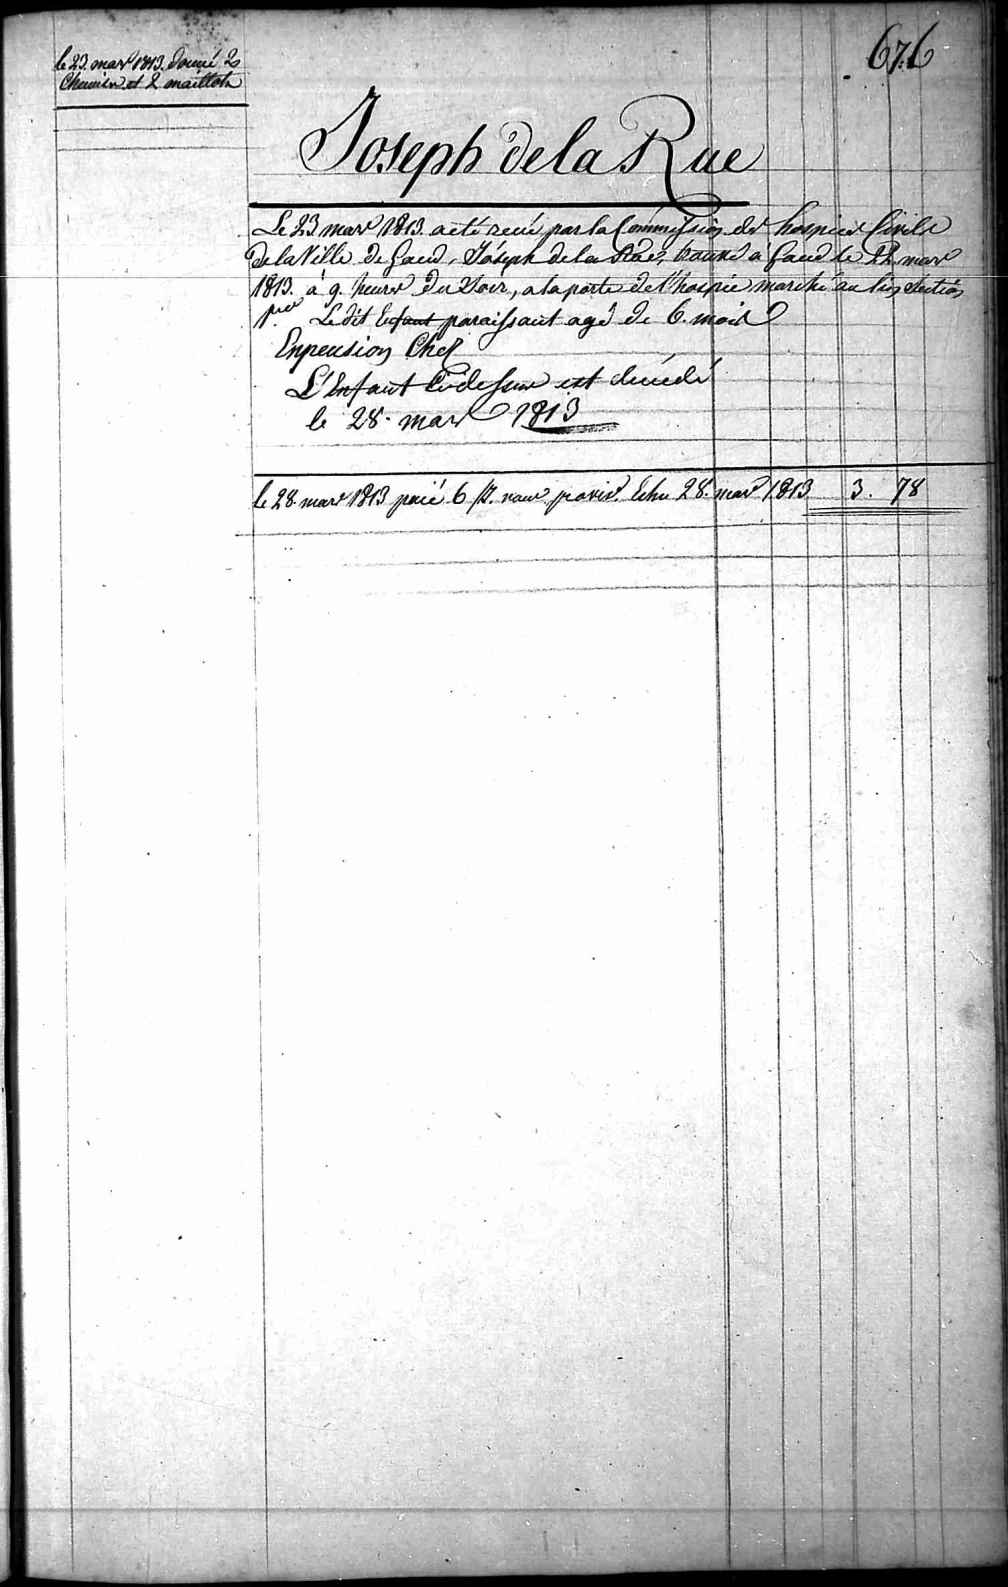 676
le 23 mars 1813. donné 2
Chemises et 2 maillots
Joseph de la Rue
Le 23 mars 1813. a eté recu par la Commission des hospices Civils
de la Ville de Gand, Joseph de la Rue, trouvé à Gand le 22 mars
1813. à 9. heures du Soir, a la porte de l'hospice marché au lin, Section
pre Le dit Enfant paraissant agé de 6. mois
En pension Chez
L'Enfant Cidessus est décédé
le 28. mars 1813
le 28 mars 1813 paié 6 jrs. Echu 28. mars 1813 3. 78